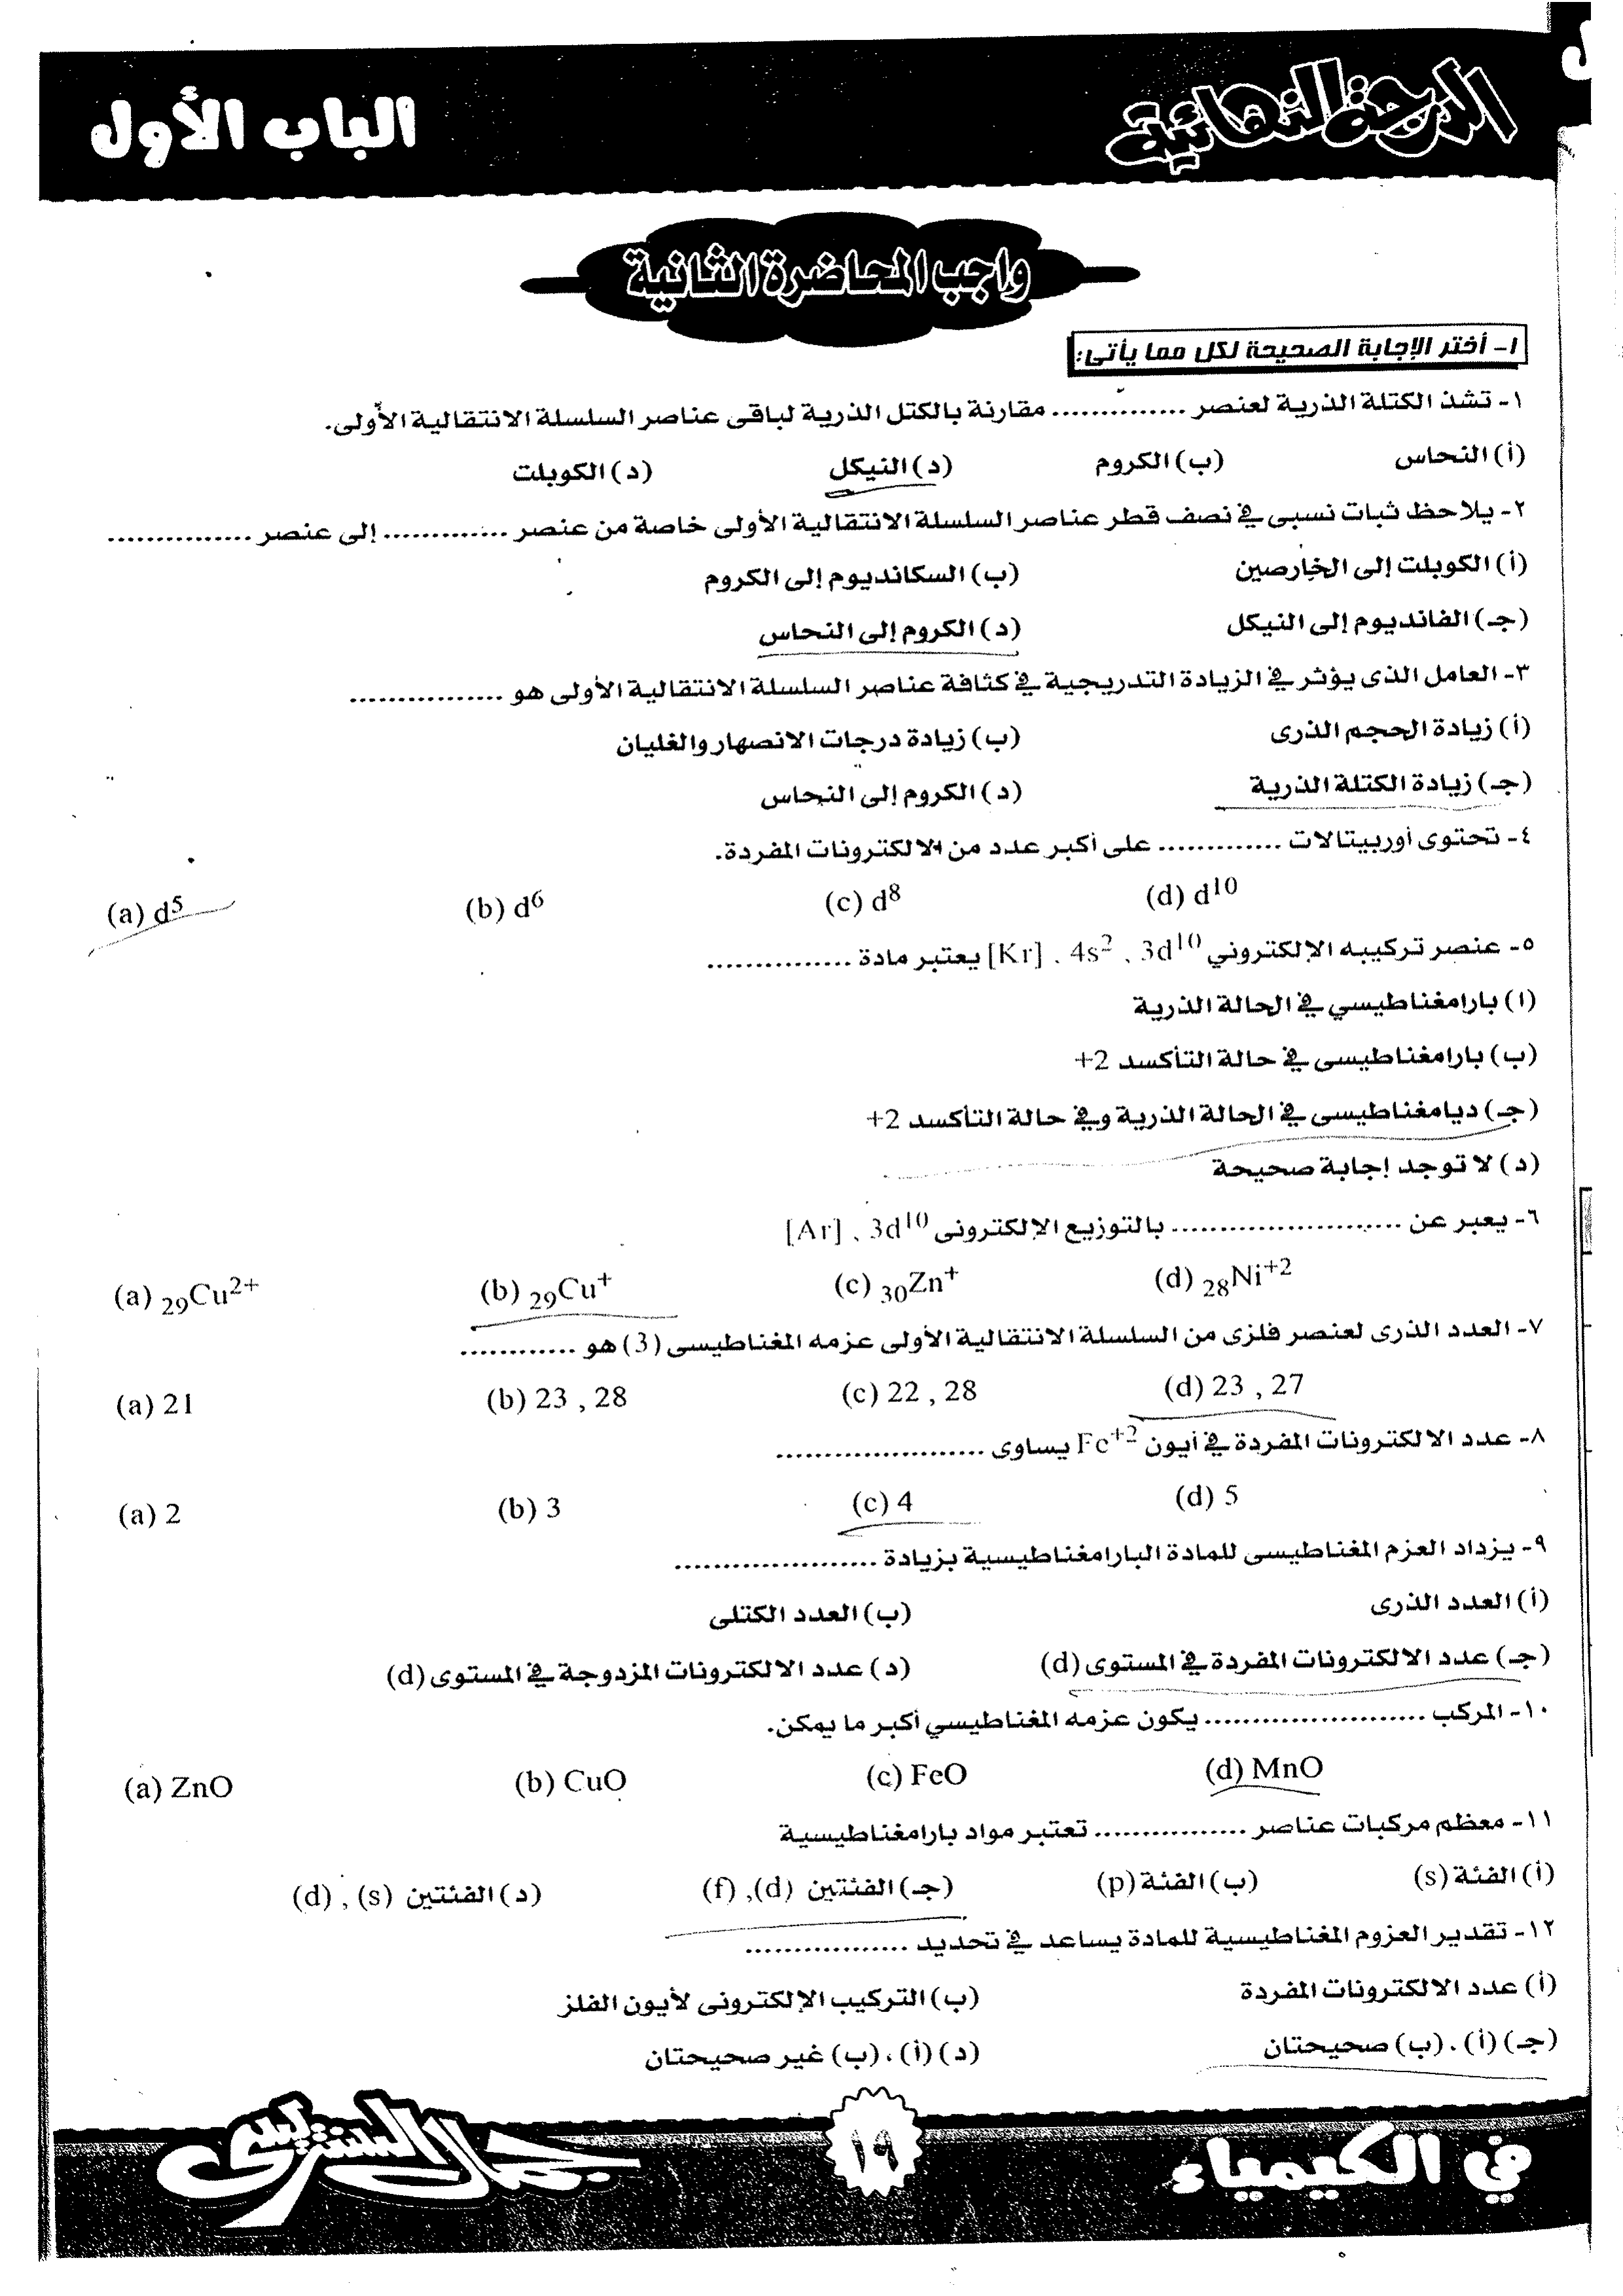 الدرجة النهائية
الباب الأول
واجب المحاضرة الثانية
١- أختر الإجابة الصحيحة لكل مما يأتى:
١- تشذ الكتلة الذرية لعنصر .............. مقارنة بالكتل الذرية لباقى عناصر السلسلة الانتقالية الأولى.
(أ) النحاس (ب) الكروم (د) النيكل (د) الكوبلت
٢- يلاحظ ثبات نسبى في نصف قطر عناصر السلسلة الانتقالية الأولى خاصة من عنصر ............. إلى عنصر ...............
(أ) الكوبلت إلى الخارصين (ب) السكانديوم إلى الكروم
(جـ) الفانديوم إلى النيكل (د) الكروم إلى النحاس
٣- العامل الذى يؤثر في الزيادة التدريجية في كثافة عناصر السلسلة الانتقالية الأولى هو ................
(أ) زيادة الحجم الذرى (ب) زيادة درجات الانصهار والغليان
(جـ) زيادة الكتلة الذرية (د) الكروم إلى النحاس
٤- تحتوى أوربيتالات ............. على أكبر عدد من الالكترونات المفردة.
(a) d⁵ (b) d⁶ (c) d⁸ (d) d¹⁰
٥- عنصر تركيبه الإلكتروني [Kr] , 4s² , 3d¹⁰ يعتبر مادة ...............
(ا) بارامغناطيسي في الحالة الذرية
(ب) بارامغناطيسى في حالة التأكسد 2+
(جـ) ديامغناطيسى في الحالة الذرية وفي حالة التأكسد 2+
(د) لا توجد إجابة صحيحة
٦- يعبر عن ........................ بالتوزيع الإلكترونى [Ar] , 3d¹⁰
(a) ₂₉Cu²⁺ (b) ₂₉Cu⁺ (c) ₃₀Zn⁺ (d) ₂₈Ni⁺²
٧- العدد الذرى لعنصر فلزى من السلسلة الانتقالية الأولى عزمه المغناطيسى (3) هو ............
(a) 21 (b) 23 , 28 (c) 22 , 28 (d) 23 , 27
٨- عدد الالكترونات المفردة في أيون Fe⁺² يساوى ......................
(a) 2 (b) 3 (c) 4 (d) 5
٩- يزداد العزم المغناطيسى للمادة البارامغناطيسية بزيادة .....................
(أ) العدد الذرى (ب) العدد الكتلى
(جـ) عدد الالكترونات المفردة في المستوى (d) (د) عدد الالكترونات المزدوجة في المستوى (d)
١٠- المركب ....................... يكون عزمه المغناطيسي أكبر ما يمكن.
(a) ZnO (b) CuO (c) FeO (d) MnO
١١- معظم مركبات عناصر ................ تعتبر مواد بارامغناطيسية
(أ) الفئة (s) (ب) الفئة (p) (جـ) الفئتين (d), (f) (د) الفئتين (s) , (d)
١٢- تقدير العزوم المغناطيسية للمادة يساعد في تحديد .................
(أ) عدد الالكترونات المفردة (ب) التركيب الإلكترونى لأيون الفلز
(جـ) (أ) ، (ب) صحيحتان (د) (أ) ، (ب) غير صحيحتان
في الكيمياء
١٩
جمال السنتريسى